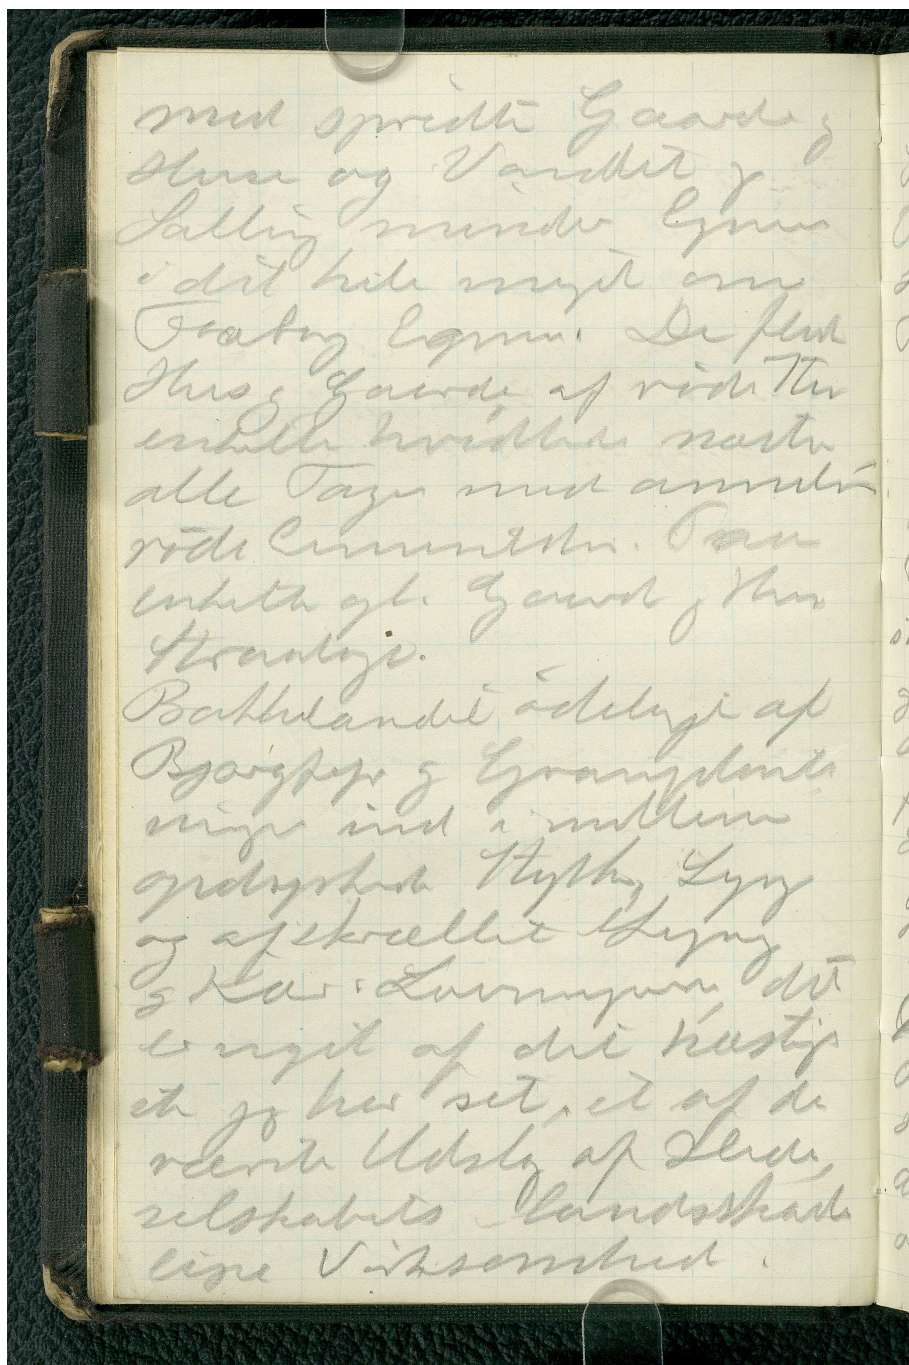 med spredte Gaarde og
Huse og Vandet og
Salling minder Egnen
i det hele meget om
Faaborg Egnen. De fleste
Huse og Gaarde af røde Sten
enkelte hvidtede næsten
alle Tage med
røde Cementsten. Faa
enkelte gl. Gaarde og Huse
Straatage.
Bakkelandet ødelagt af
Bjergfyr og Granplant-
ninger ind imellem
opdyrkede Stykker, Lyng
og afskrællet Lyng
og det
er noget af det hæslig
ste jeg har set, et af de
værste Udslag af Hede
selskabets landsskade
lige Virksomhed.